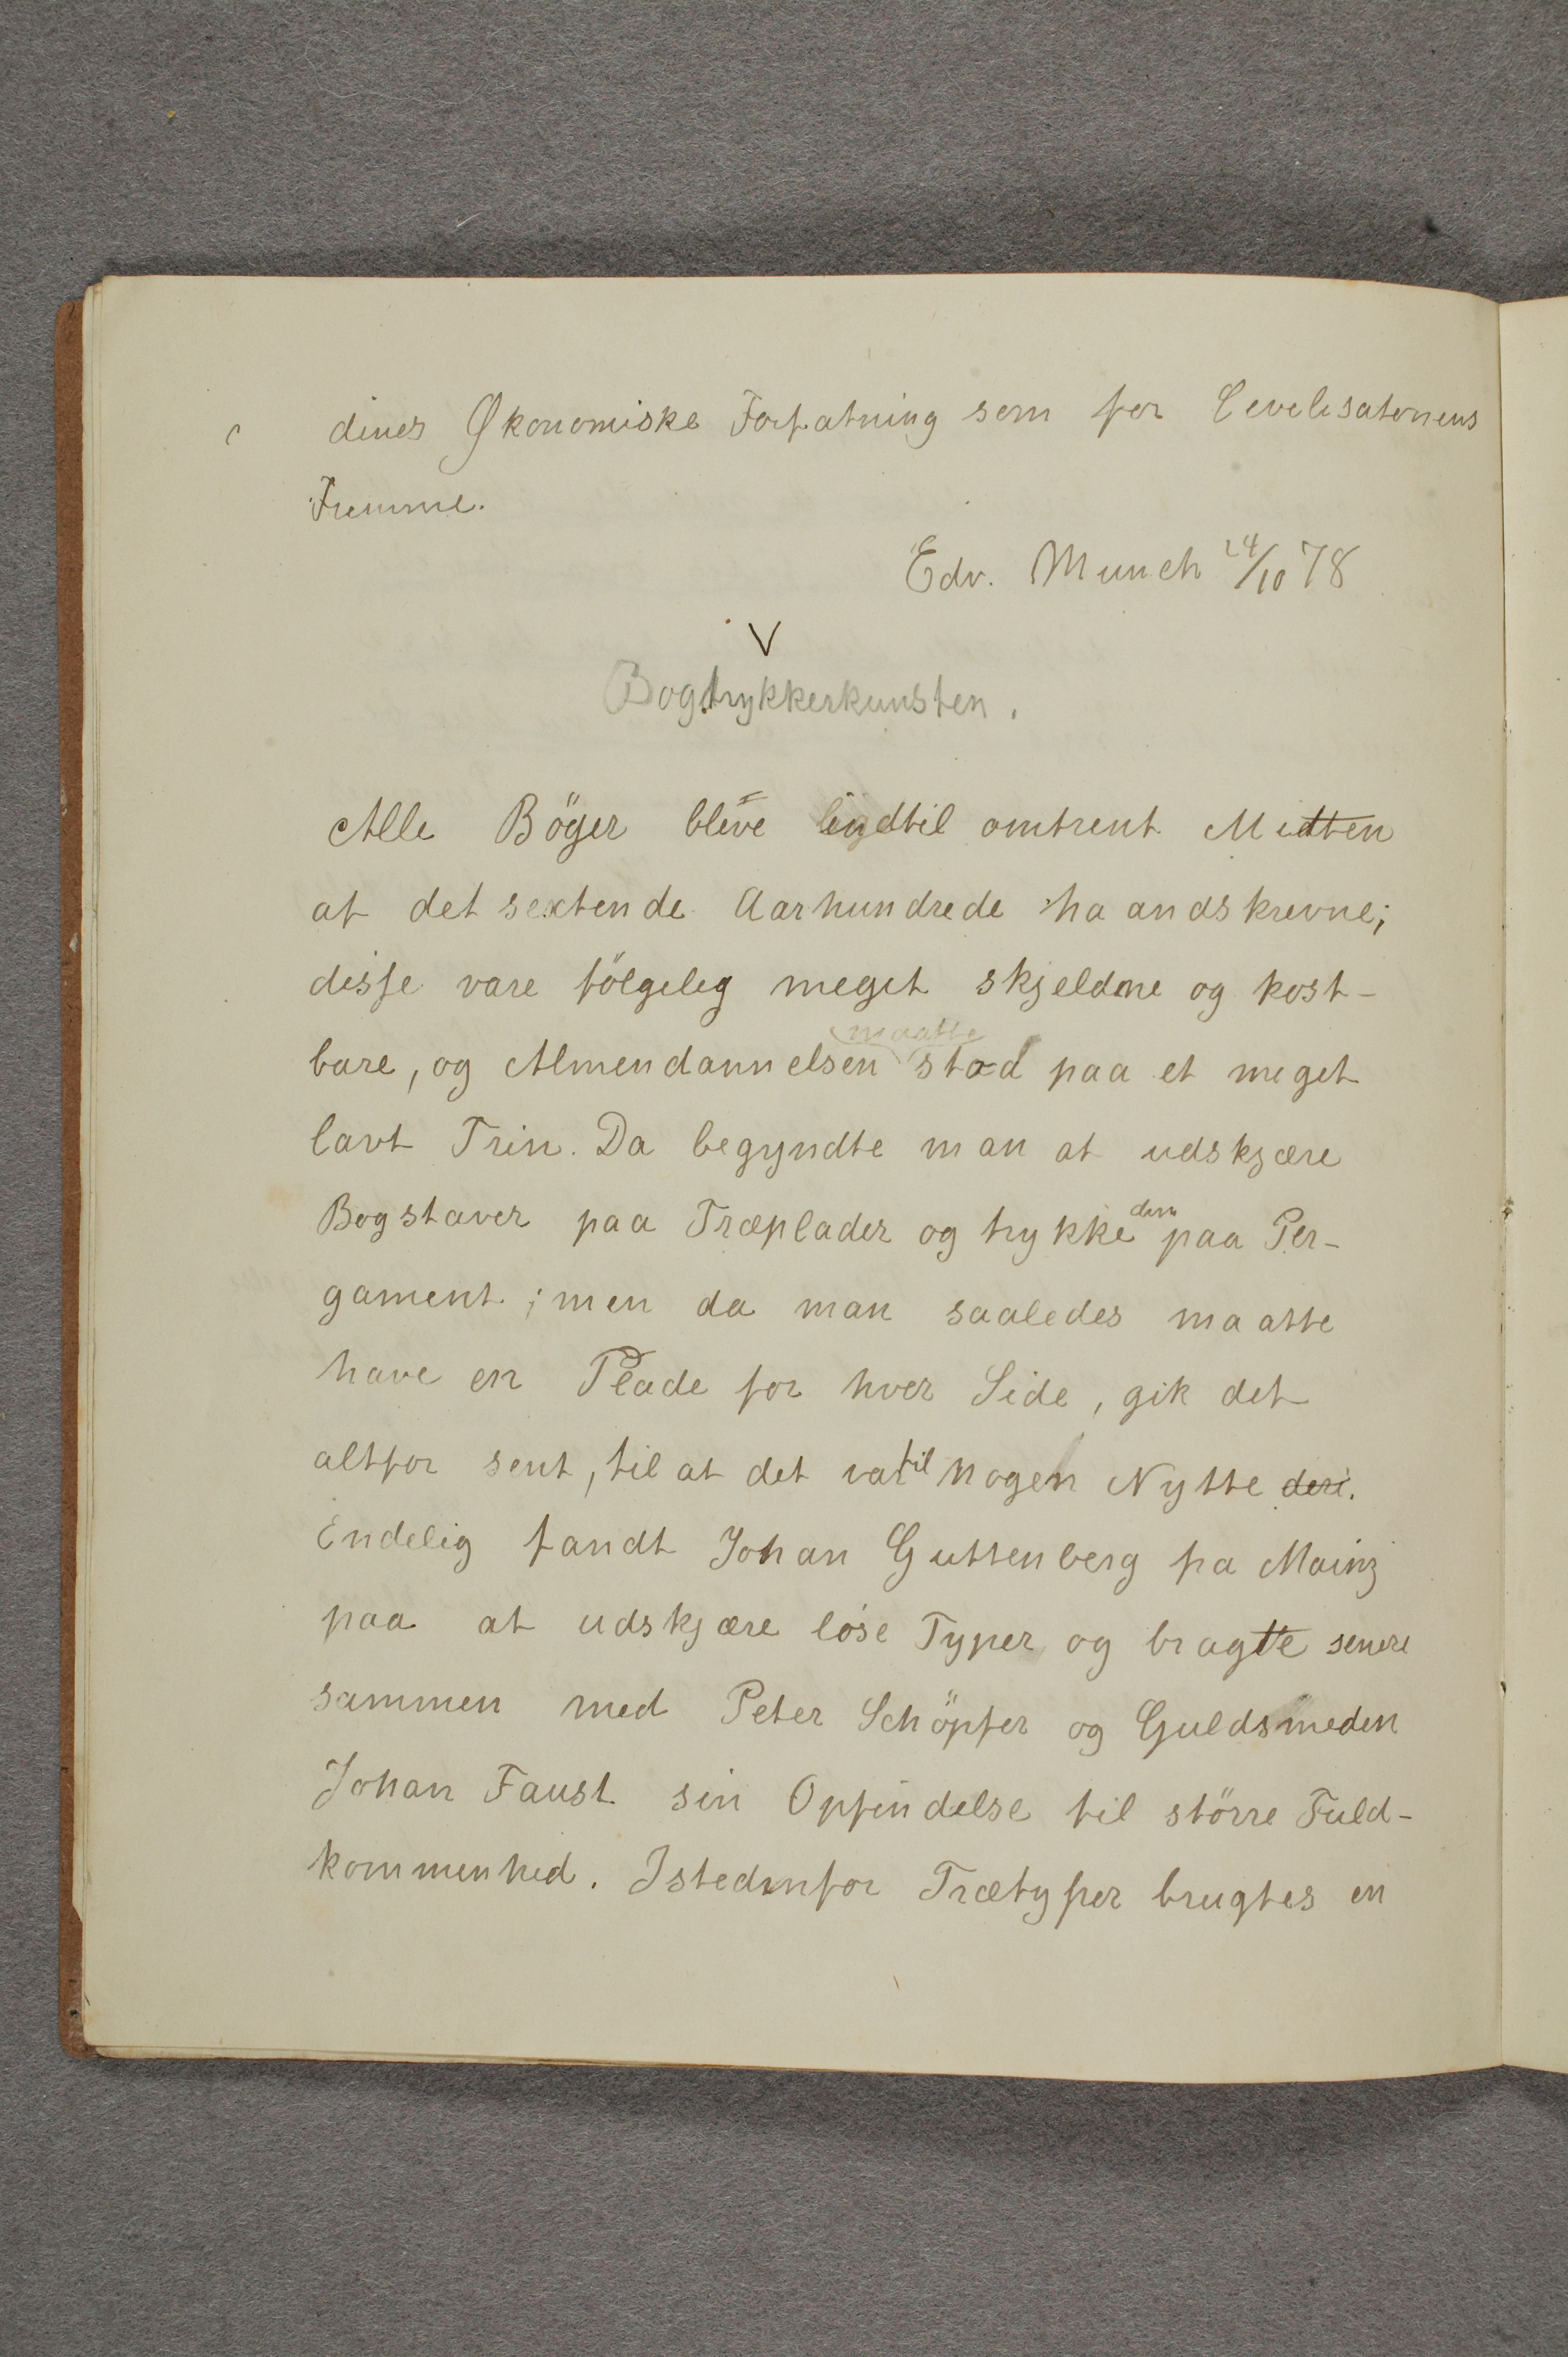 dines Økonomiske Forfatning som for Cevelisatonens
Fremme.
Edv. Munch 24/10 78
V
Bogtrykkerkunsten.
Alle Böger bleve indtil omtrent Midten
af det sextende Aarhundrede haandskrevne;
disse vare fölgelig meget skjeldne og kost-
maatte
bare, og Almendannelsen stod paa et meget
lavt Trin. Da begyndte man at udskjære
dem
Bogstaver paa Træplader og trykke paa Per-
gament; men da man saaledes maatte
have en Plade for hver Side, gik det
altfor sent, til at det var til nogen Nytte deri.
Endelig fandt Johan Guttenberg fra Mainz
paa at udskjære löse Typer og bragte senere
sammen med Peter Schöpfer og Guldsmeden
Johan Faust sin Opfindelse til större Fuld-
kommenhed. Istedenfor Trætyper brugtes en